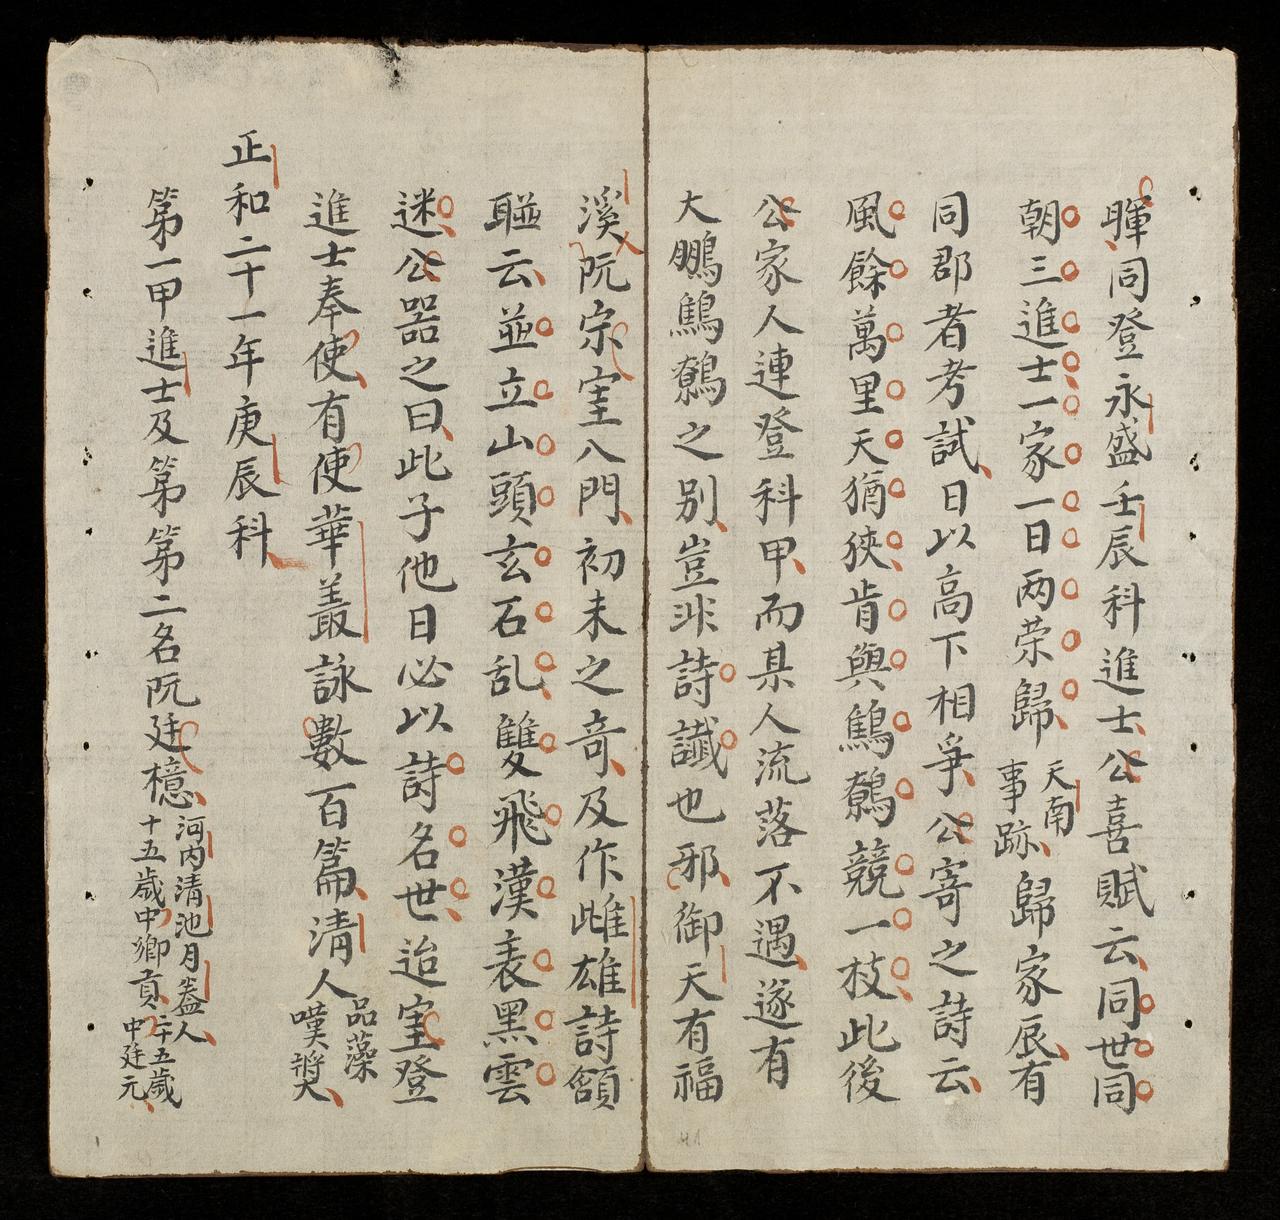 暉同登永盛壬辰科進士公喜賦云同世同
朝三進士一家一日两荣歸天南事跡歸家辰有
同郡者考試日以高下相爭公寄之詩云
風餘萬里天猶狹肯與鷦鷯競一枝此後
公家人連登科甲而某人流落不遇遂有
大鵬鷦鷯之别豈非詩讖也邪御天有福
溪阮宗室八門初未之竒及作雌雄詩額
聮云並立山頭玄石乱雙飛漢表黑雲
迷公器之曰此子他日必以詩名世迨室登
進士奉使有使華叢詠數百篇清人品藻嘆奨
正和二十一年庚辰科
第一甲進士及第第二名阮廷檍河内清池月盎人十五歳中鄉貢二十五歳中廷元